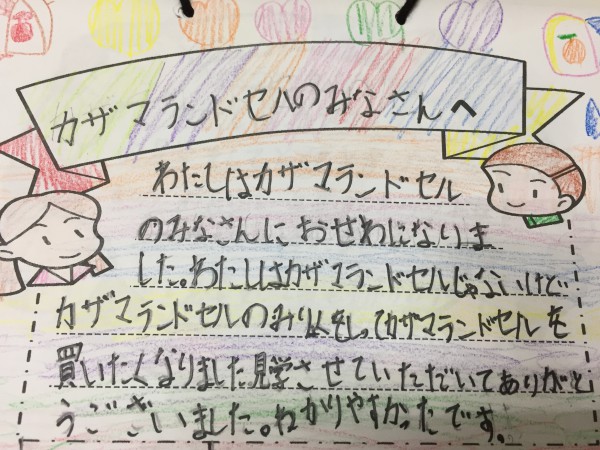 カザマランドセルのみなさんへ
わたしはカザマランドセル
のみなさんにおせわになりま
した。わたしはカザマランドセルじゃないけど
カザマランドセルのみりょくをしってカザマランドセルを
買いたくなりました見学させていただいてありがと
うございました。わかりやすかったです。